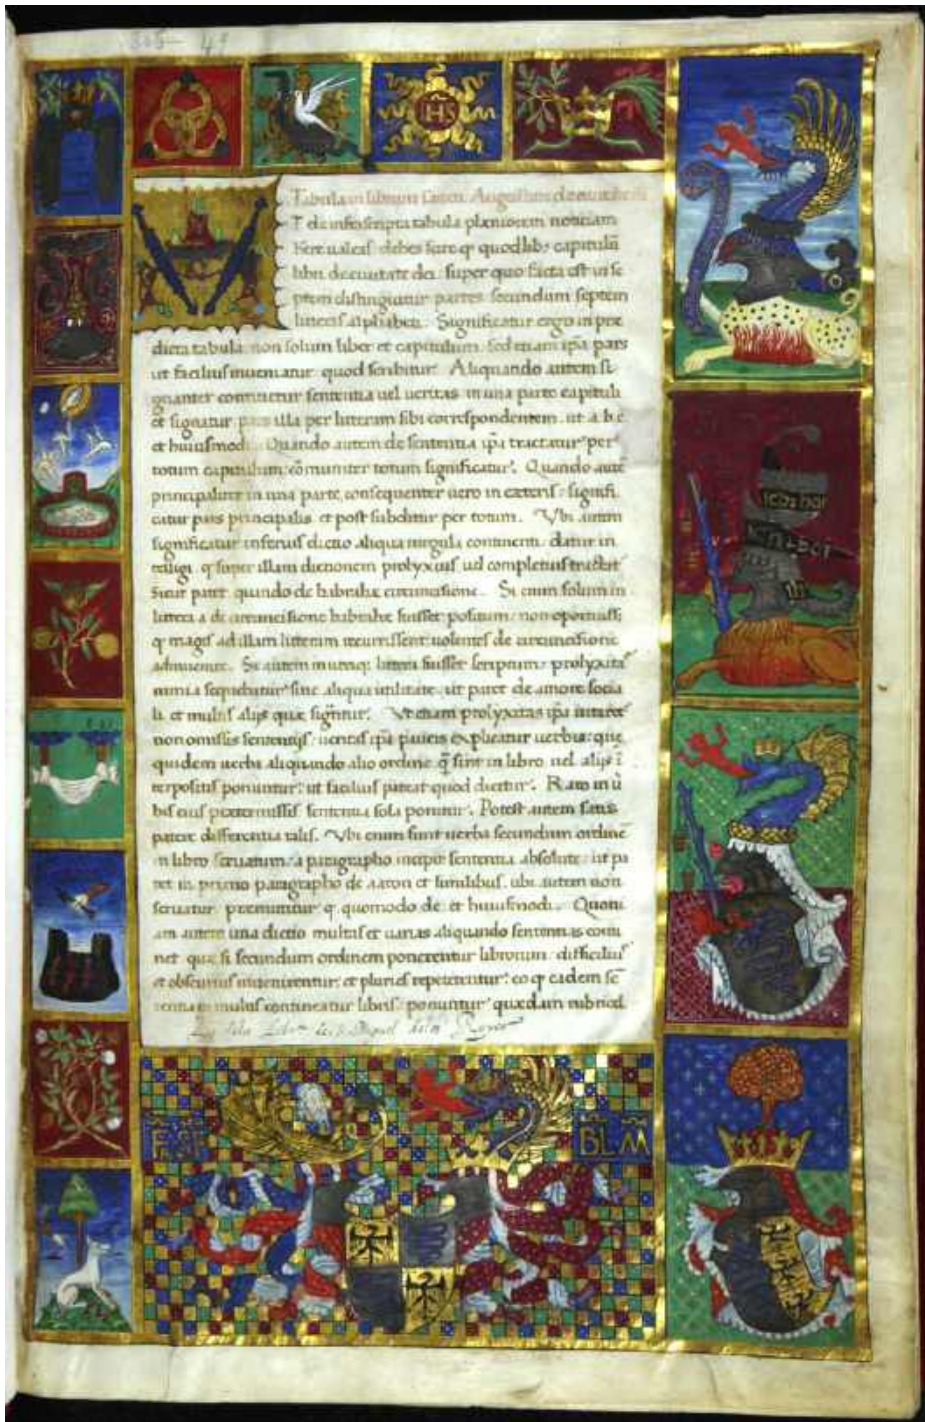 49
IHS
Tabula in librum Augustini de
T de infrascripta tabula pleniorem noticiam
debes scire q quodlibʒ capitulū
libri de ciuitate dei super quo facta est in se
ptem distinguitur partes secundum septem
litteras alphabeti. Significatur ergo in pre
dicta tabula non solum liber et capitulum, sed etiam ip̄a pars
ut facilius inueniatur quod scribitur. Aliquando autem si
gnanter continetur sententia uel ueritas in una parte capituli
et signatur pars illa per litteram sibi correspondentem. ut a.b.c.
et huiusmodi. Quando autem de sententia ip̄a tractatur per
totum capitulum cōmuniter totum significatur. Quando autē
principaliter in una parte, consequenter uero in ceteris: signifi
catur pars principalis et post subditur per totum. Vbi autem
significatur inferius dictio aliqua uirgula continenti datur in
telligi q super illam dictionem prolyxius uel completius tractat
sicut patet quando de circuncisione. Si enim solum in
littera a de circuncisione fuisset positum, non
q magis ad illam litteram recurrissent uolentes de circuncisione
Si autem in utraqʒ littera fuisset scriptum, prolyxitas
nimia sequebatur sine aliqua utilitate, ut patet de amore socia
li et multis alijs que Vt etiam prolyxitas ip̄a uitaret
non omissis sententijs: ip̄a paucis explicatur uerbis: que
quidem uerba aliquando alio ordine q̄ sint in libro uel alijs ī
terpositis ponuntur: ut facilius pateat quod dicitur. Raro in ū
bis eius pretermissis sententia sola ponitur. Potest autem satis
patere differentia talis. Vbi enim sunt uerba secundum ordinē
in libro seruatum: a paragrapho incipit sententia absolute: ut pa
tet in primo paragrapho de aaron et similibus. ubi autem non
seruatur premittitur q, quomodo de et huiusmodi. Quoni
am autem una dictio multas et uarias aliquando sententias conti
net que si secundum ordinem ponerentur librorum: difficilius
et obscurius inuenirentur: et pluries repeterentur: eo q eadem sē
tentia in multis contineatur libris: ponuntur quedam rubrice
BLM